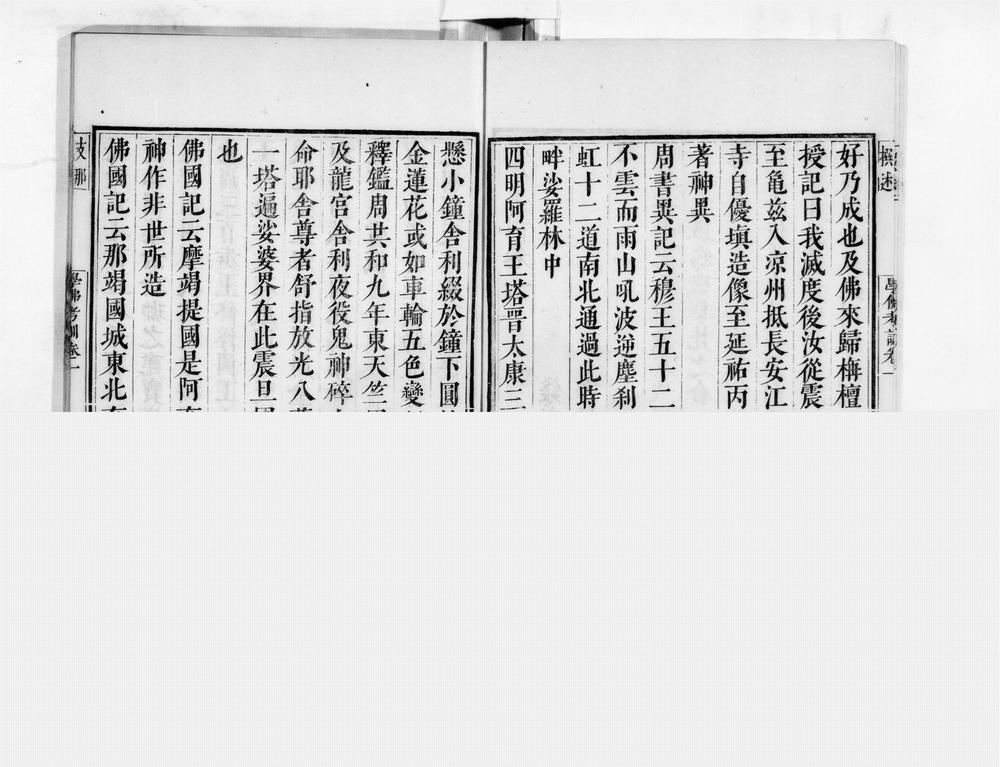 好乃成也及佛來歸栴檀
授記日我滅度後汝從震
至亀玆入凉州抵長安江
寺自優塡造像至延祐丙
著神異
周書異記云穆王五十二
不雲而雨山吼波逆塵刹
虹十二道南北通過此時
畔娑羅林中
四明阿育王塔晋太康三
懸小鐘舍利綴於鐘下圓
金蓮花或如車輪五色變
釋鑑周共和九年東天竺
及龍宮舍利夜役鬼神碎
命耶舍尊者舒指放光八
一塔遍娑婆界在此震旦
也
佛國記云摩竭提國是阿
神作非世所造
佛國記云那竭國城東北
學佛考訓卷一